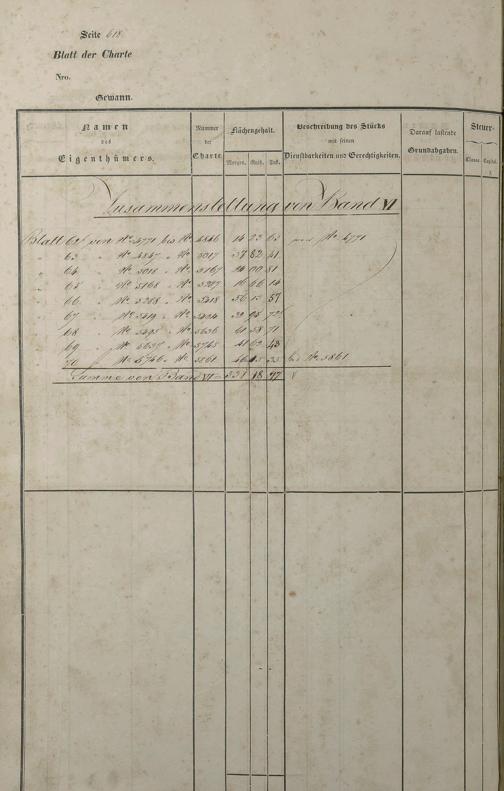 Seite 618
Blatt der Charte
Nro.
Gewann.
Namen des Eigenthümers.
Nummer der Charte.
Flächengehalt.
Morgen. Ruth. Fuß.
Beschreibung des Stücks mit seinen Dienstbarkeiten und Gerechtigkeiten.
Darauf lastende Grundabgaben.
Steuer-
Classe. Capital.
Zusammenstellung von Band VI
Blatt 62 von No 4771 bis No 4846 14 23 63 von No 4771
63 " No 4847 " No 5017 37 82 41
64 " No 5018 " No 5167 81
65 " No 5168 " No 5287 16 66 14
66 " No 5288 " No 5418 56 57
67 " No 5419 " No
68 " No 5495 " No 5636 61 58 71
69 " No 5637 " No 5745 41 62 43
70 " No 5746 " No 5861 bis No 5861
Summe von Band VI = 331 18 97